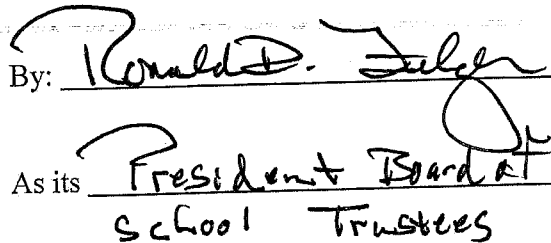 By: Ronald D.
As its President Board of
School Trustees